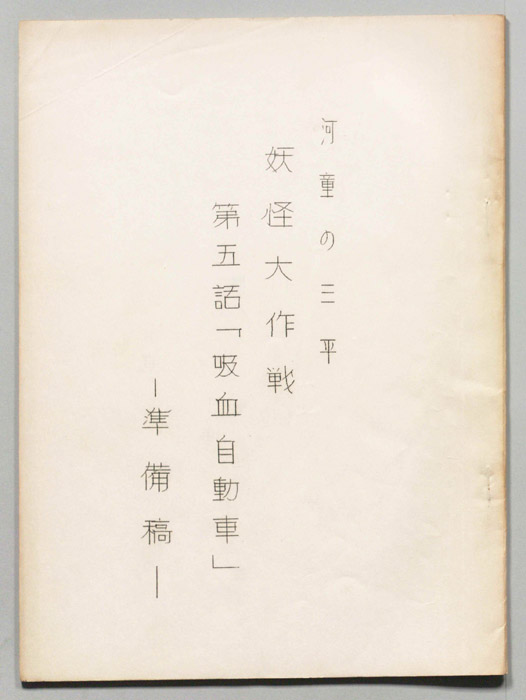 河童の三平
妖怪大作戦
第五話「吸血自動車」
ー準備稿ー